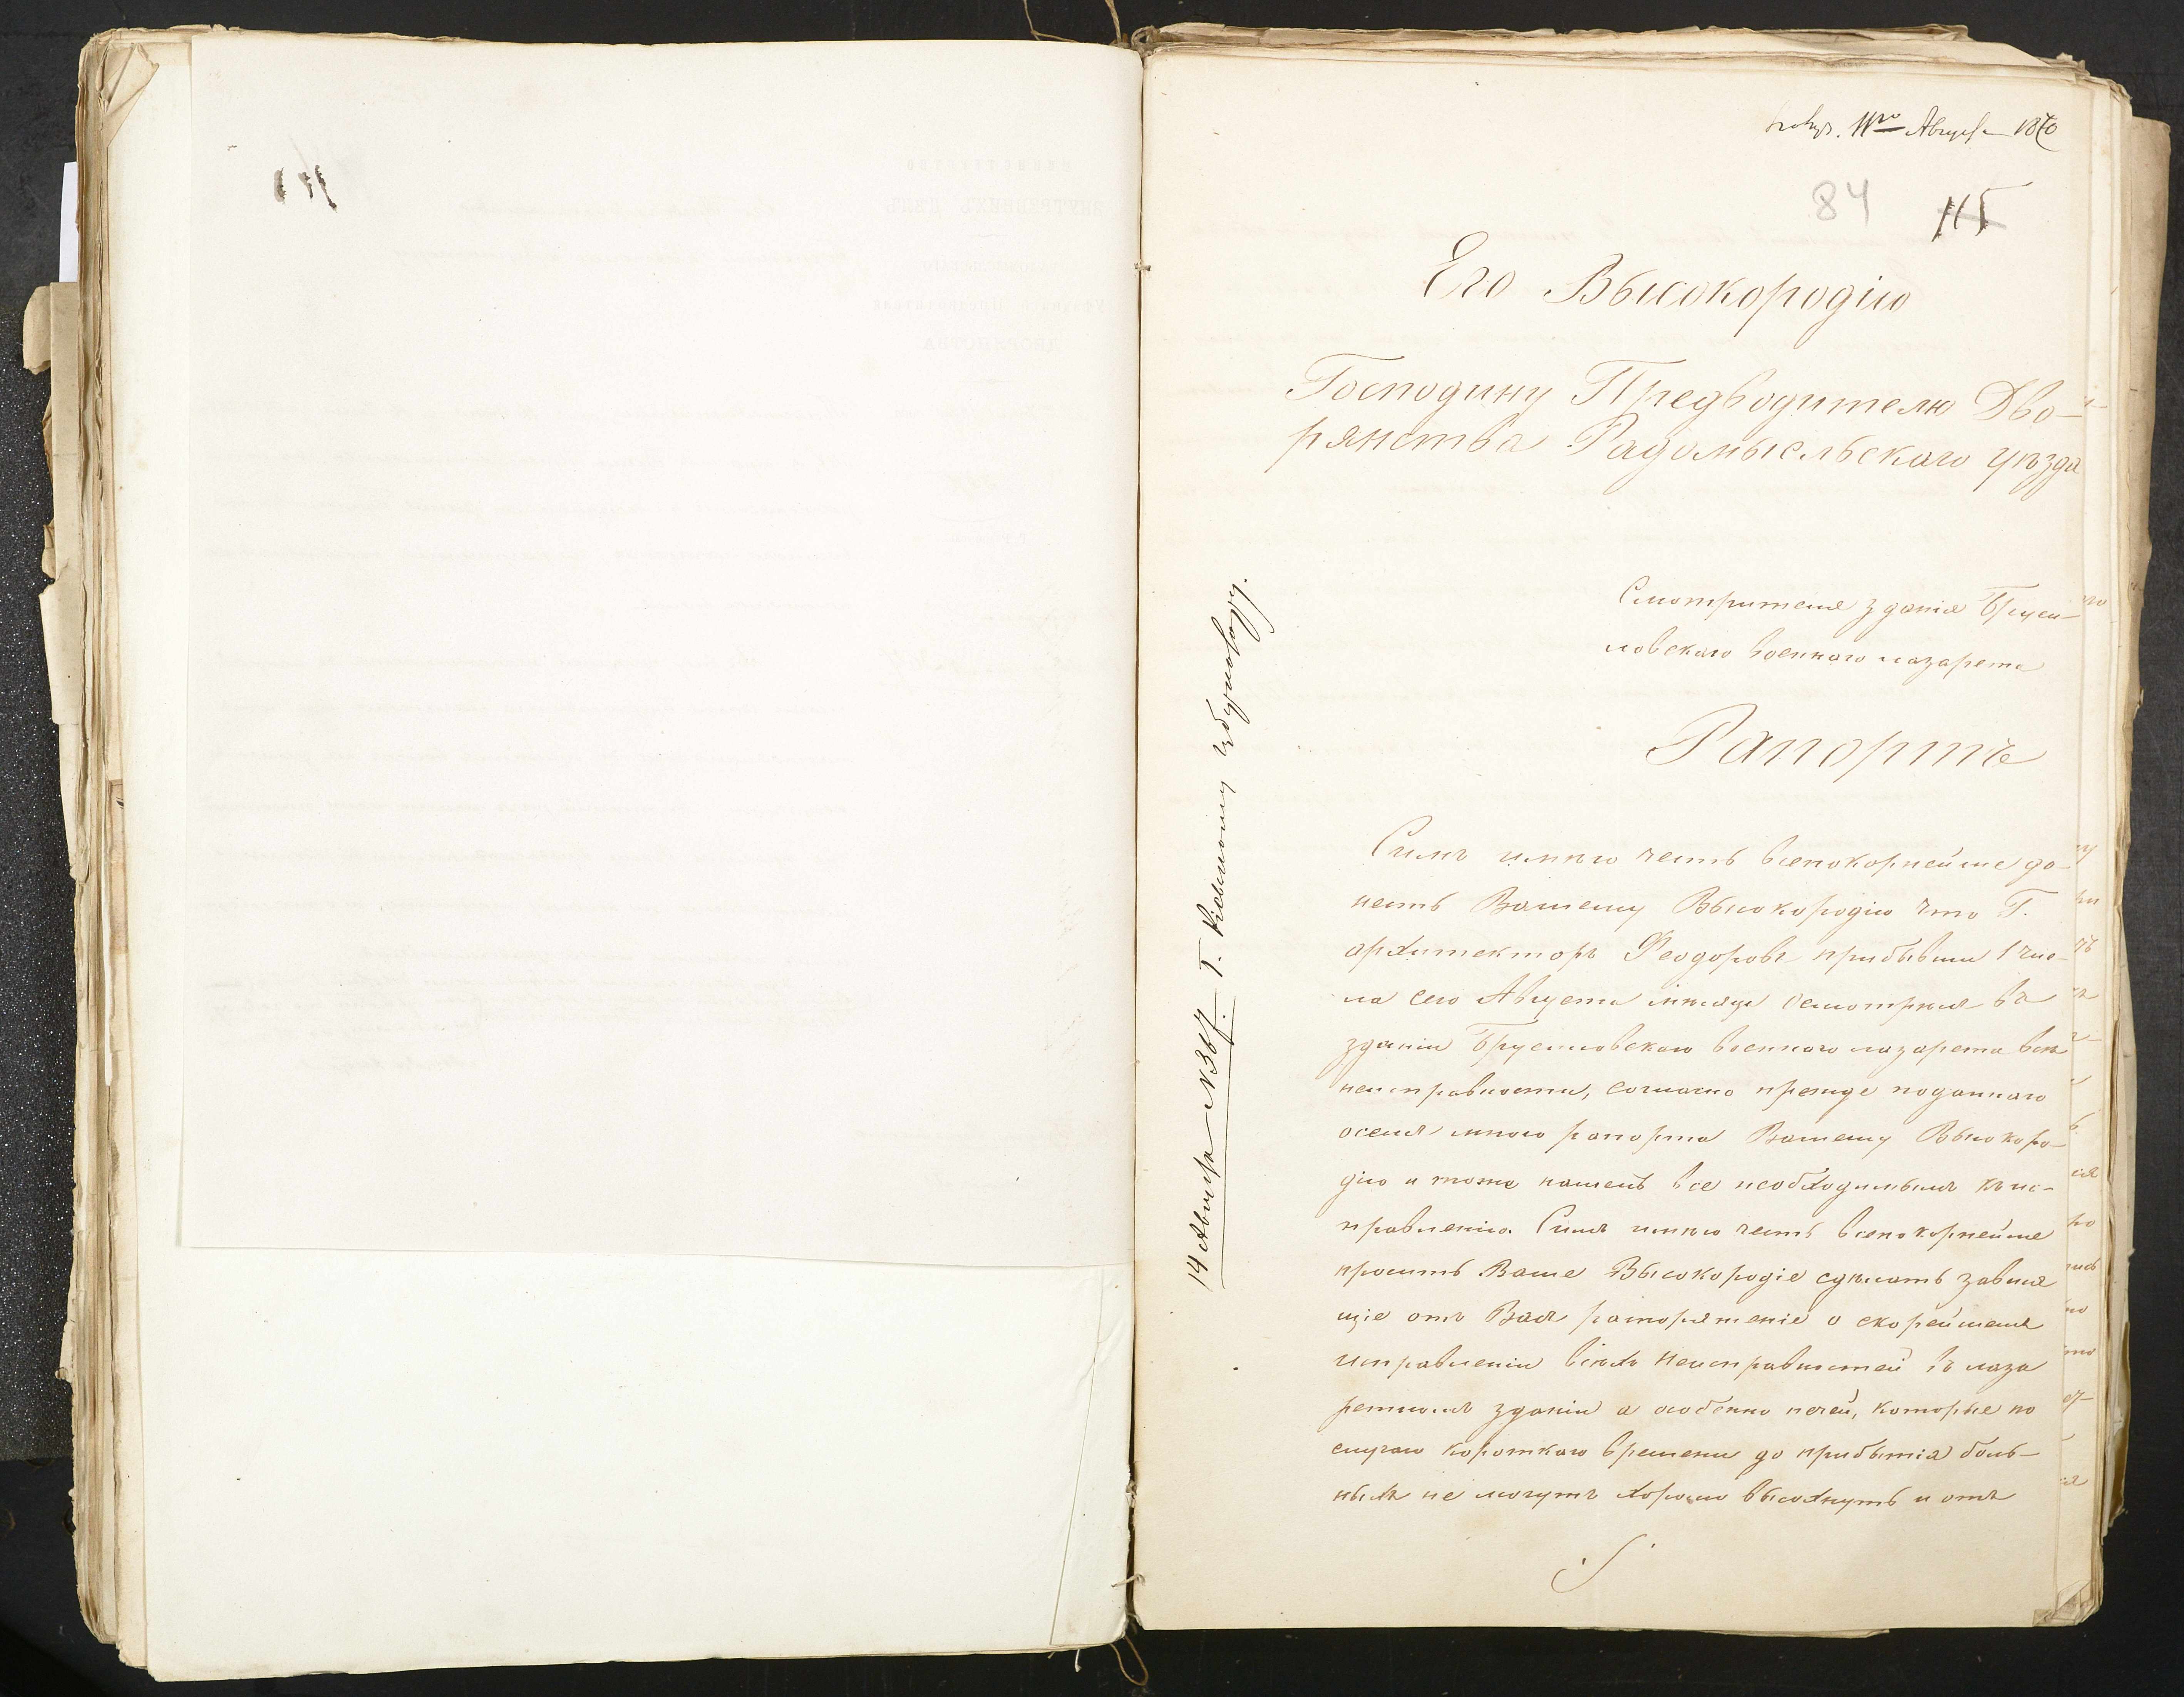 11го Августа 1870
84 115
Его Высокородію
Господину Предводителю Дво-
рянства Радомысльскаго уѣзда
Смотрителя зданія Бруси-
ловскаго военнаго лазарета
Рапортъ
14 Августа № 367. Г.
Симъ имѣю честь всепокорнейше до-
несть Вашему Высокородію что Г.
архитекторъ Феодоровъ прибывши 1 чис-
ла сего Августа мѣсяца осмотрѣлъ въ
зданіи Брусиловскаго военнаго лазарета всѣ
неисправности, согласно прежде поданнаго
осемъ мною рапорта Вашему Высокоро-
дію и тоже нашелъ все необходимымъ къ ис-
правленію. Симъ имѣю честь всепокорнейше
просить Ваше Высокородіе сдѣлать завися
щіе отъ Васъ распоряженіе о скорейшемъ
исправленіи всѣхъ неисправностей въ лаза
ретномъ зданіи а особенно печей, которые по
случаю короткаго времени до прибытія боль-
ныхъ не могутъ хорошо высохнуть и отъ